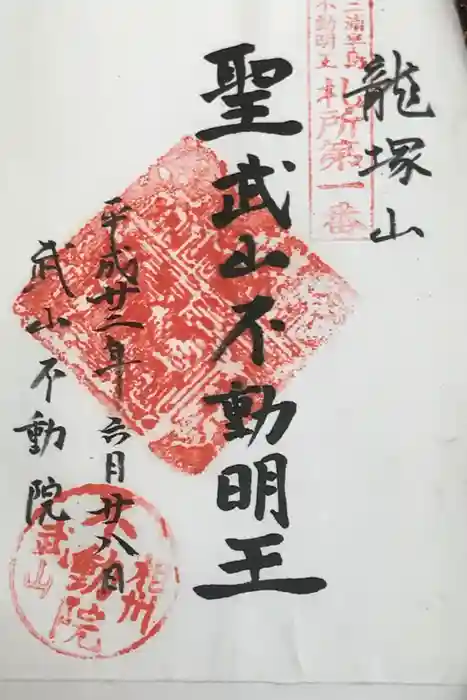 三浦半島
不動明王 札所第一番
龍塚山
聖武山不動明王
平成廿二年六月廿八日
武山不動院
相州
不動院
武山